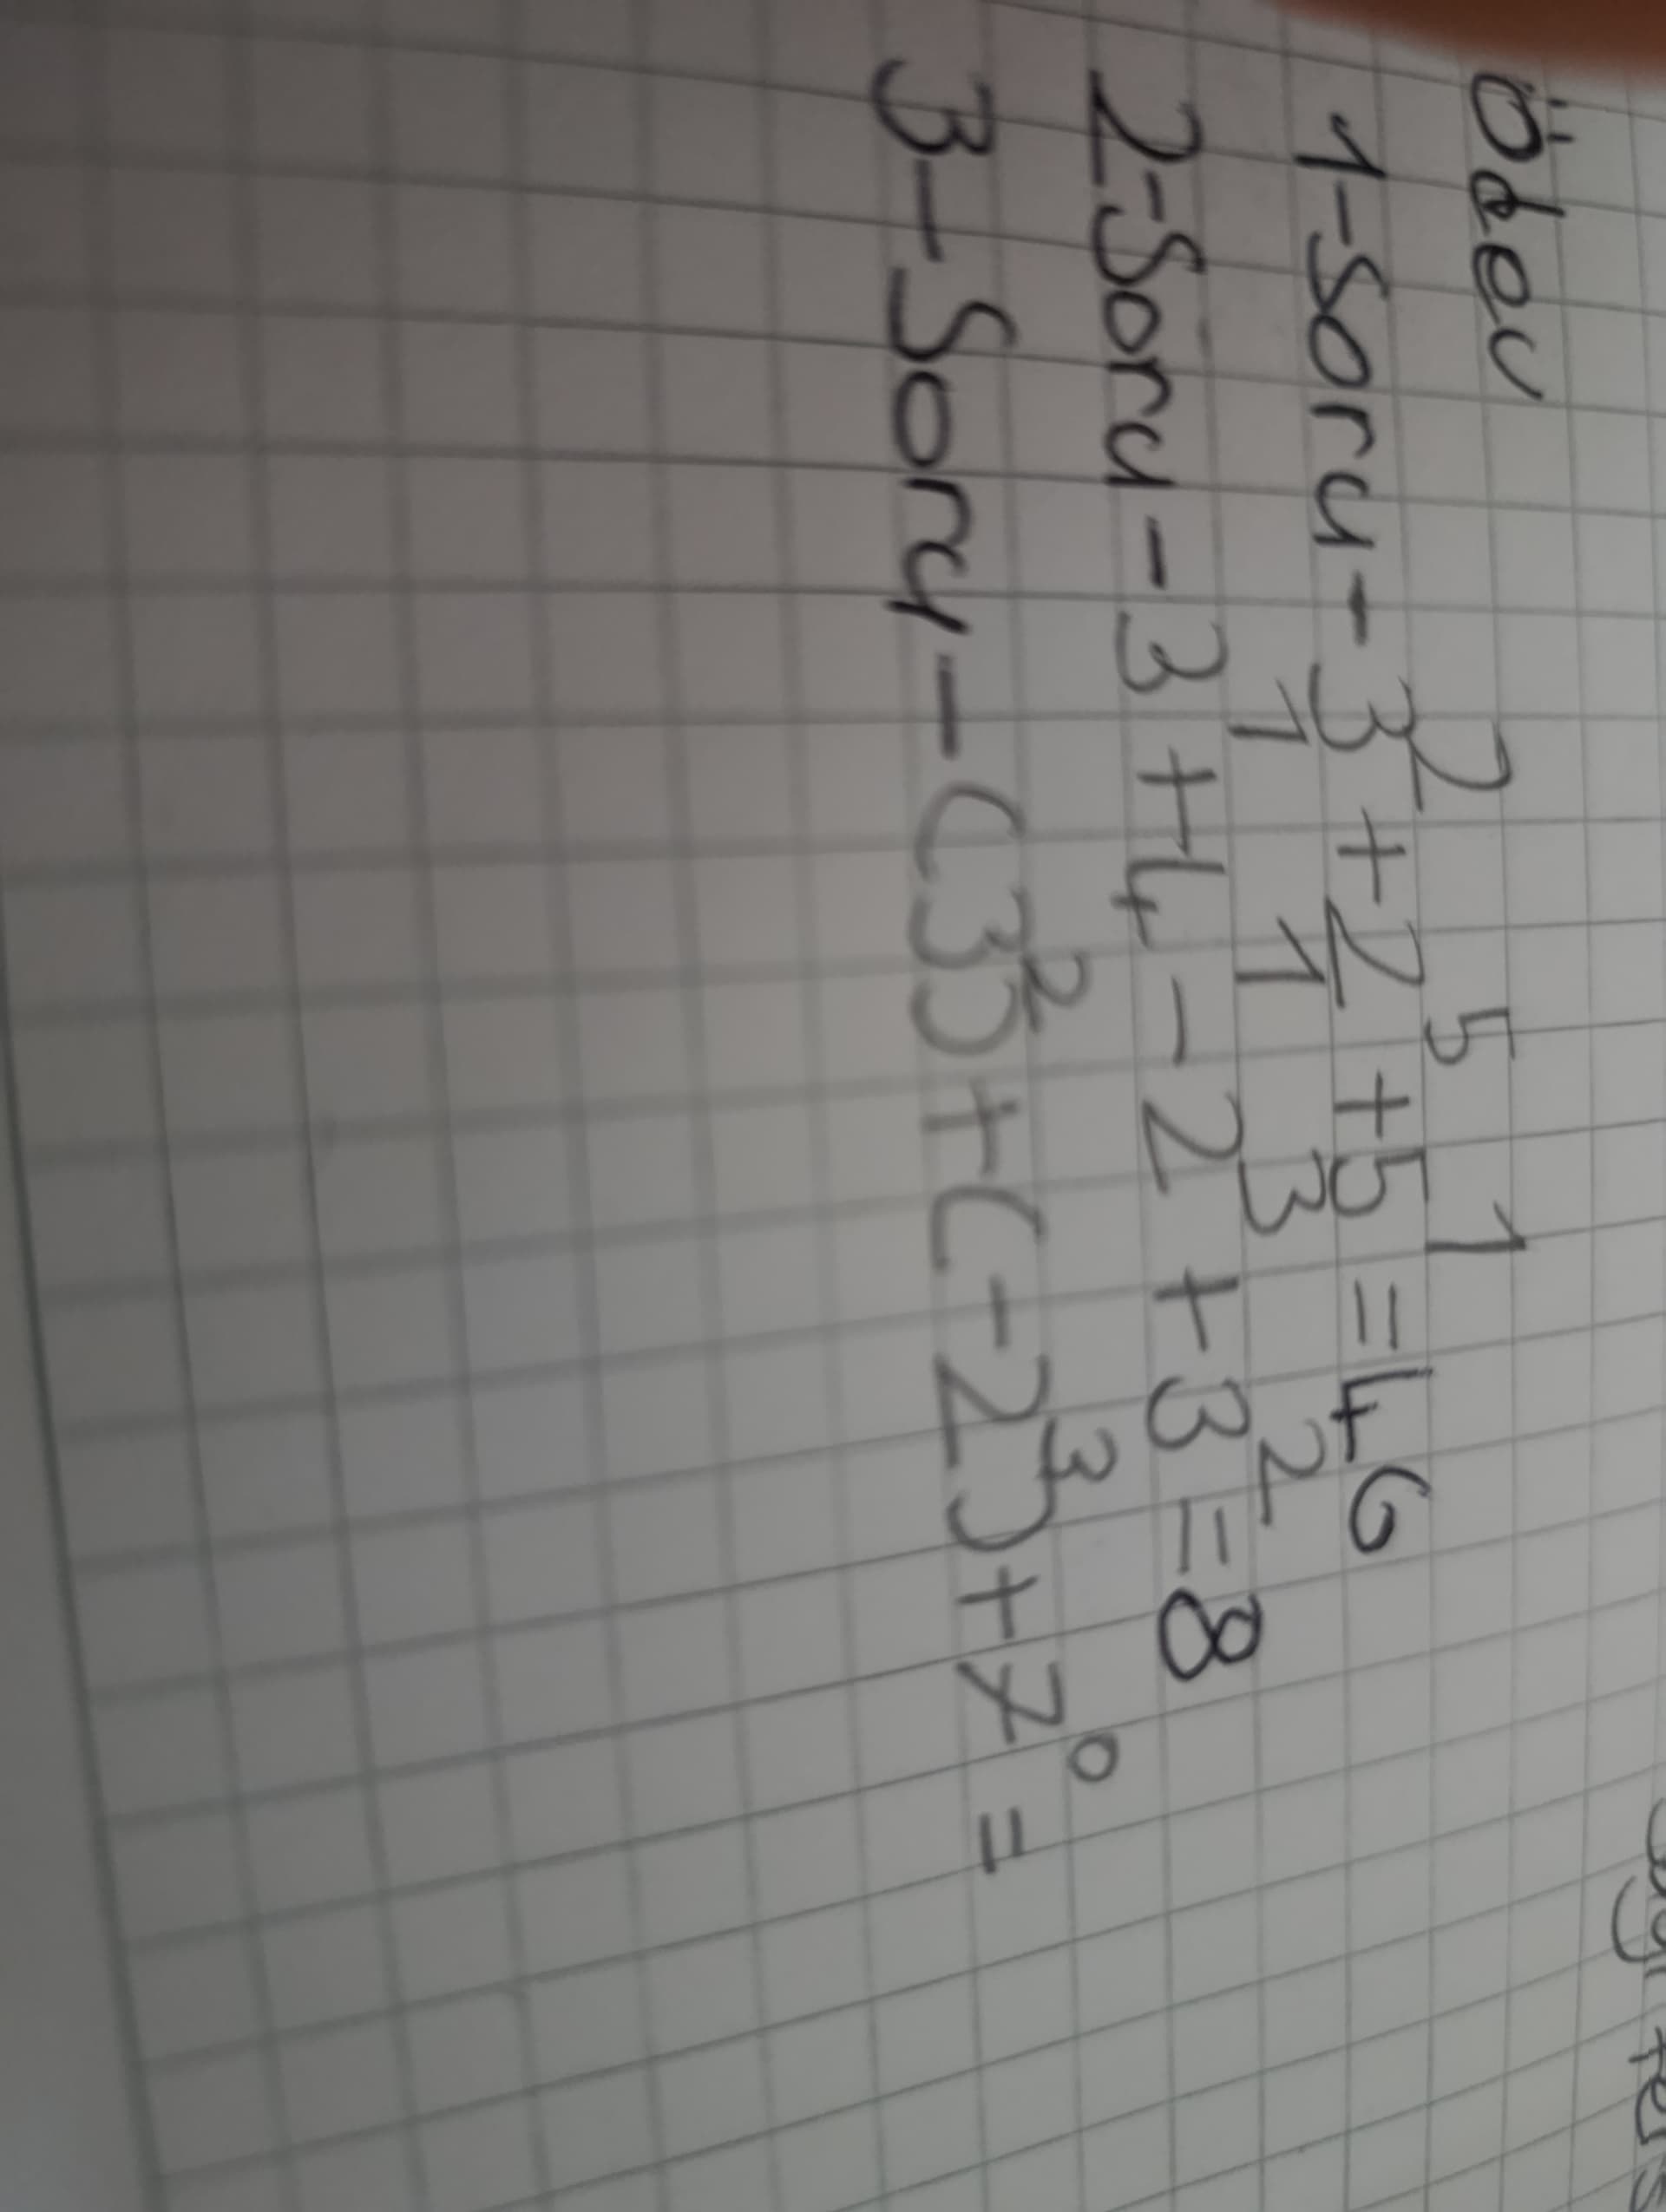 Ödev
1-Soru - 3² + 2⁵ + 5¹ = 46
2-Soru - 3¹ + 4¹ - 2³ + 3² = 8
3-Soru - (3²) + (-2³) + 7⁰ =